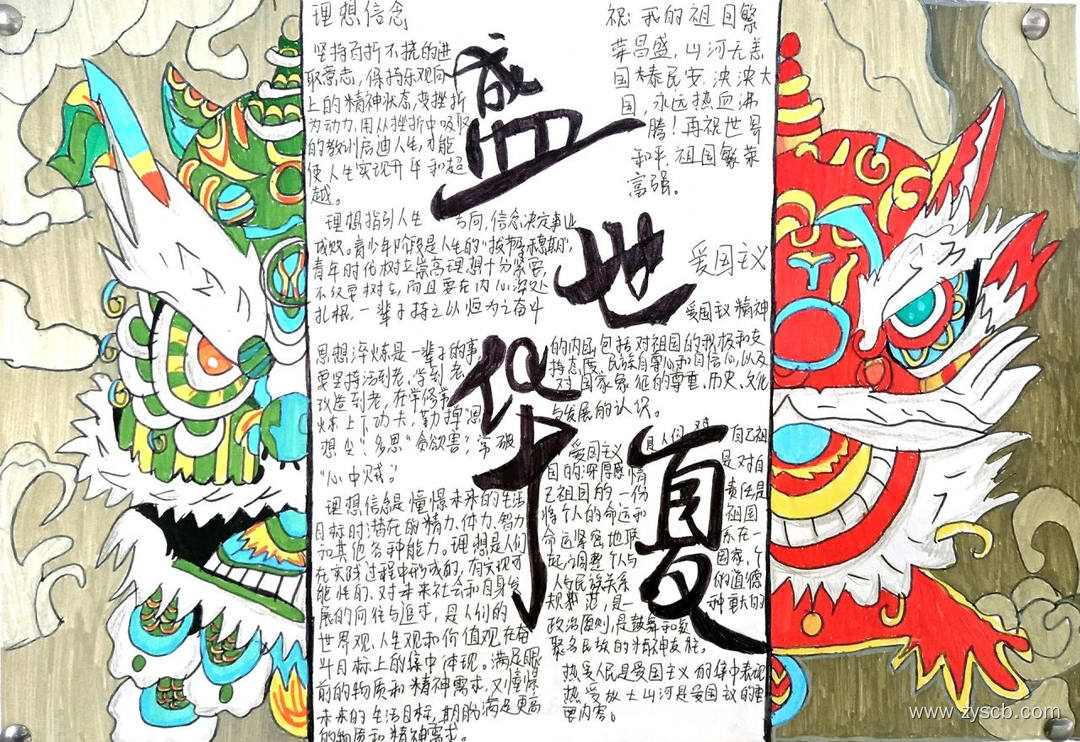 理想信念
坚持百折不挠的进
取意志，保持乐观向
上的精神状态，变挫折
为动力，用从挫折中吸取
的教训启迪人生，才能
使人生实现升华和超
越。
理想指引人生方向，信念决定事业
成败。青少年阶段是人生的“拔节孕穗期”，
青年时代树立崇高理想十分紧要，
不仅要树立，而且要在内心深处
扎根，一辈子持之以恒为之奋斗
思想淬炼是一辈子的事
要坚持活到老、学到老
改造到老，在常修常
炼上下功夫，勤掸“思
想尘”多思“贪欲害”，常破
“心中贼”。
理想信念是憧憬未来的生活
目标时潜在的精力、体力、智力
和其他各种能力。理想是人们
在实践过程中形成的，有实现可
能性的、对未来社会和自身发
展的向往与追求，是人们的
世界观、人生观和价值观在奋
斗目标上的集中体现。满足眼
前的物质和精神需求，又憧憬
未来的生活目标，期盼满足更高
的物质和精神需求。
盛世华夏
祝：我的祖国繁
荣昌盛，山河无恙
国泰民安，泱泱大
国，永远热血沸
腾！再祝世界
和平，祖国繁荣
富强。
爱国主义
爱国主义精神
的内涵包括对祖国的积极和支
持态度、民族自尊心和自信心，以及
对国家象征的尊重、历史、文化
与发展的认识。
爱国主义是人们对自己祖
国的深厚感情 是对自
己祖国的一份责任是
将个人的命运和祖国
命运紧密地联系在一
起，调整个人与国家、个
人与民族关系的道德
规范，是一种重大的
政治原则，是鼓舞和凝
聚各民族的精神支柱。
热爱人民是爱国主义的集中表现
热爱故土山河是爱国主义的重
要内容。
www.zyscb.com